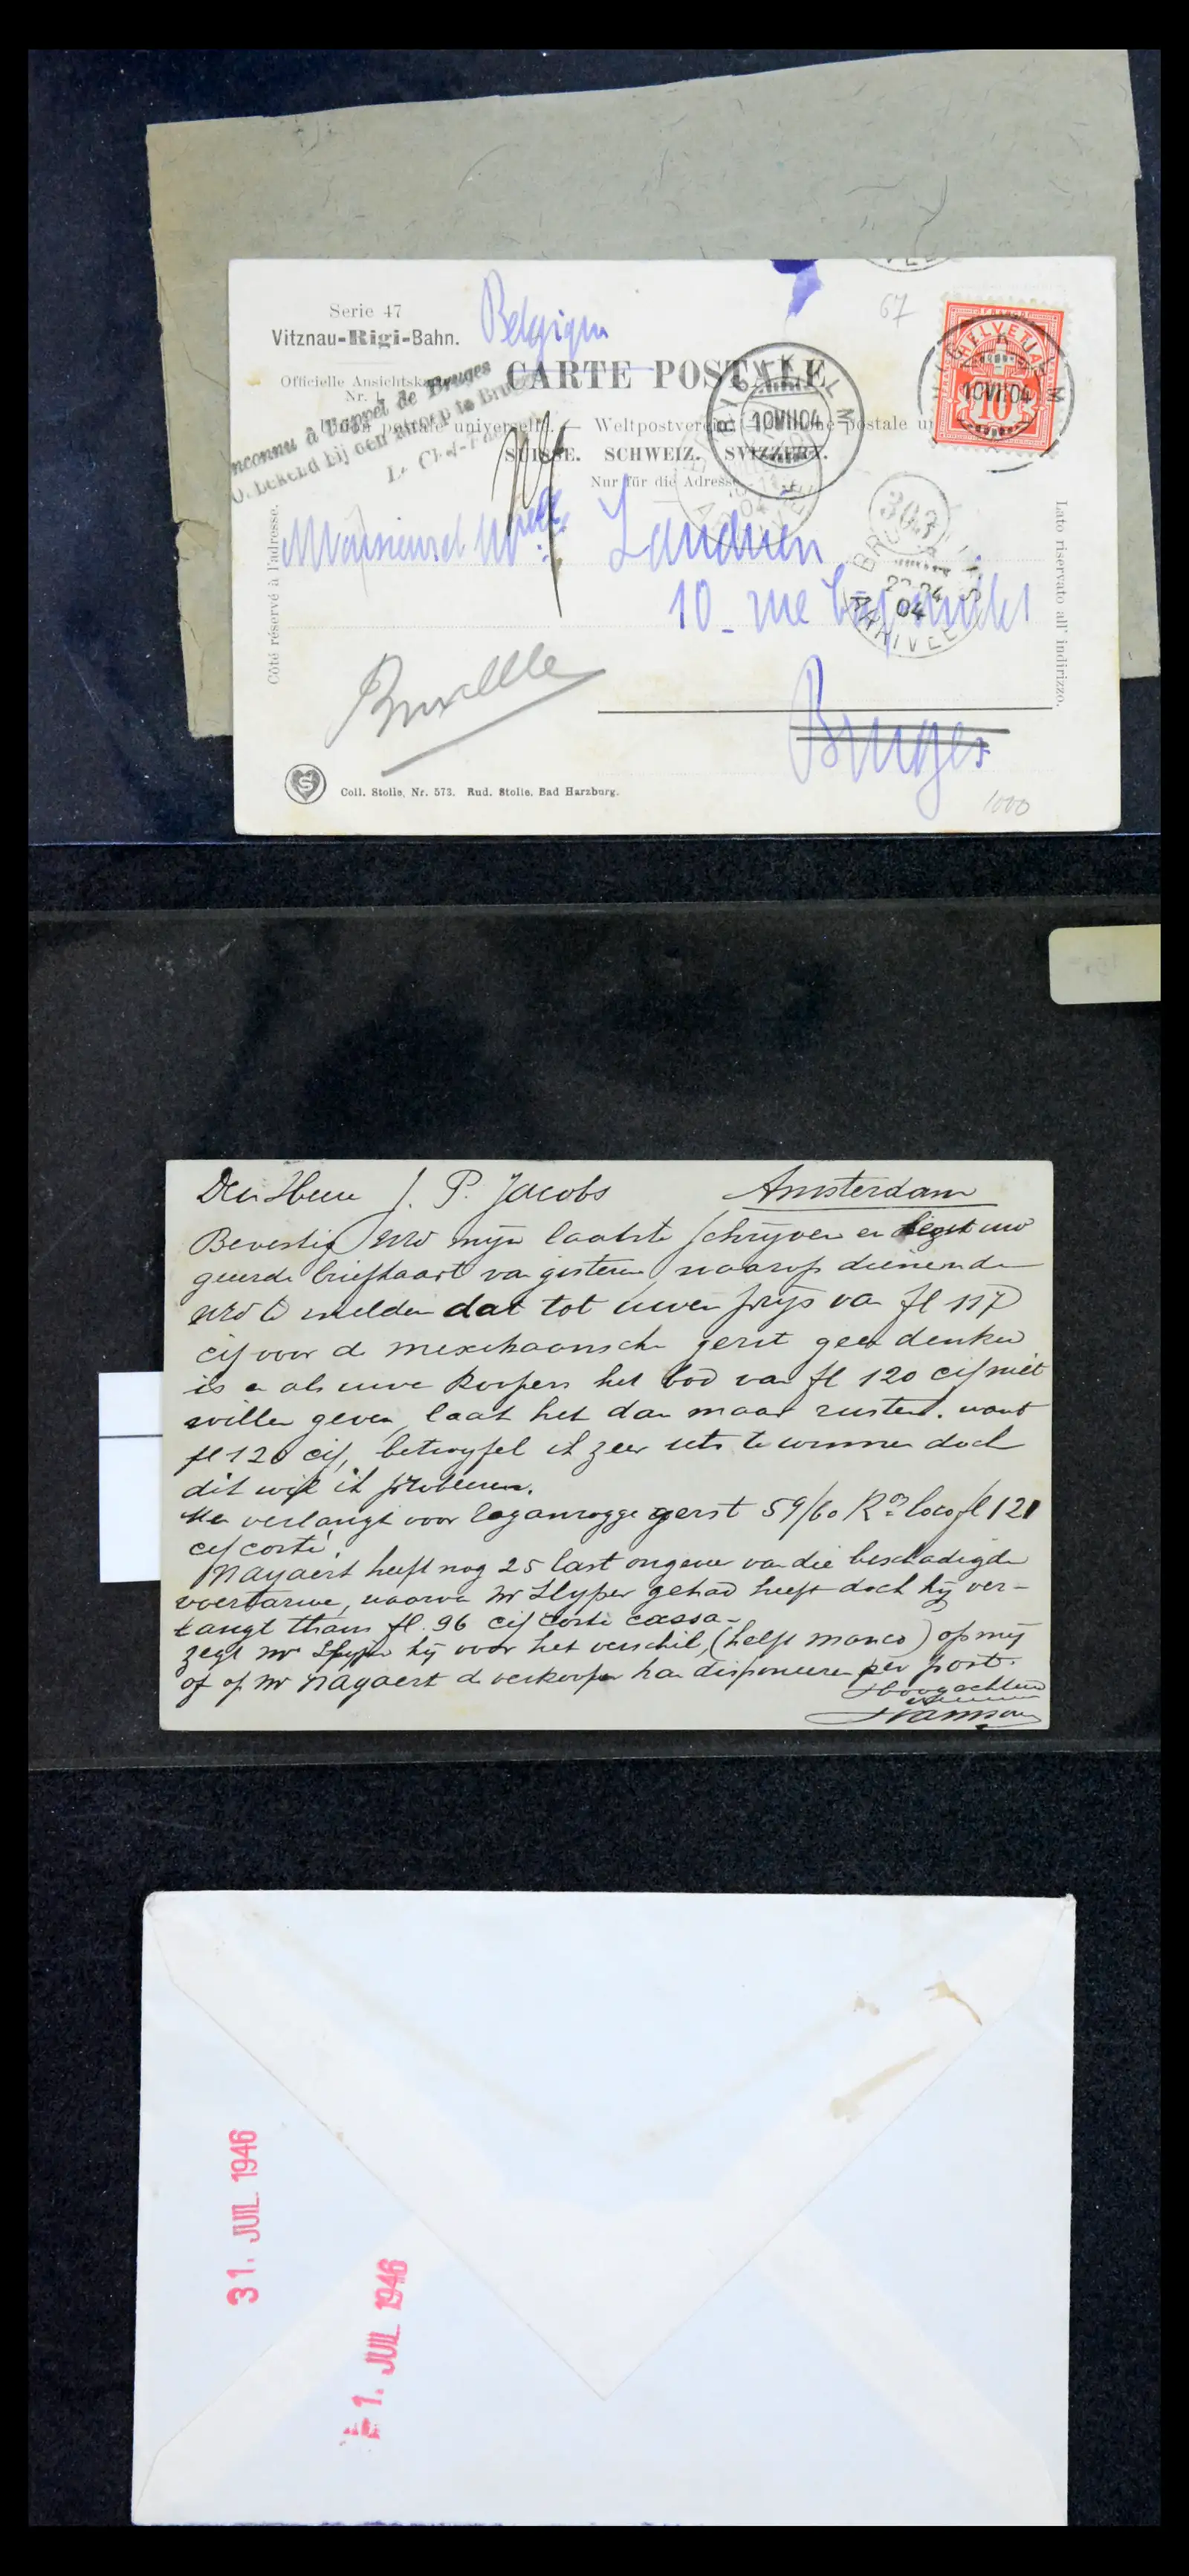 Serie 47
Vitznau-Rigi-Bahn.
Belgique
67
HELVETIA
10
10 VII 04
CARTE POSTALE
Officielle
Nr.
Inconnu à l'appel de Bruges
Onbekend bij den afroep te
postale universelle. — Weltpostverein postale
SUISSE. SCHWEIZ. SVIZZERA.
Nur für die Adresse
10 VII 04
303
ARRIVEE
04
Monsieur et Mlle
10 - rue
Bruxelle
Bruges
Côté réservé à l'adresse.
Lato riservato all' indirizzo.
S
Coll. Stolle, Nr. 573. Rud. Stolle, Bad Harzburg.
1000
Den Heer J. P. Jacobs Amsterdam
Bevestig UEd mijn laatste schrijven en uw
geeerde briefkaart van gisteren, waarop dienende
UEd te melden dat tot uwen prijs van fl 117
cif voor de mexikaansche gerst geen denken
is en als uwe koopers het bod van fl 120 cif niet
willen geven laat het dan maar rusten. want
fl 120 cif, betwyfel ik zeer iets te winnen doch
dit wil ik probeeren.
Men verlangt voor taganrogge gerst 59/60 Ko loco fl 121
cif conti.
Mayaert heeft nog 25 last ongeveer van die beschadigde
voertarwe, waarvan Mr Slyper gehad heeft doch hij ver-
langt thans fl. 96 cif conti cassa -
zegt Mr Slyper hij voor het verschil, (helft manco) op mij
of op Mr Mayaert de verkooper kan disponeeren per post.
Hoogachtend
31. JUIL 1946
1. JUIL 1946